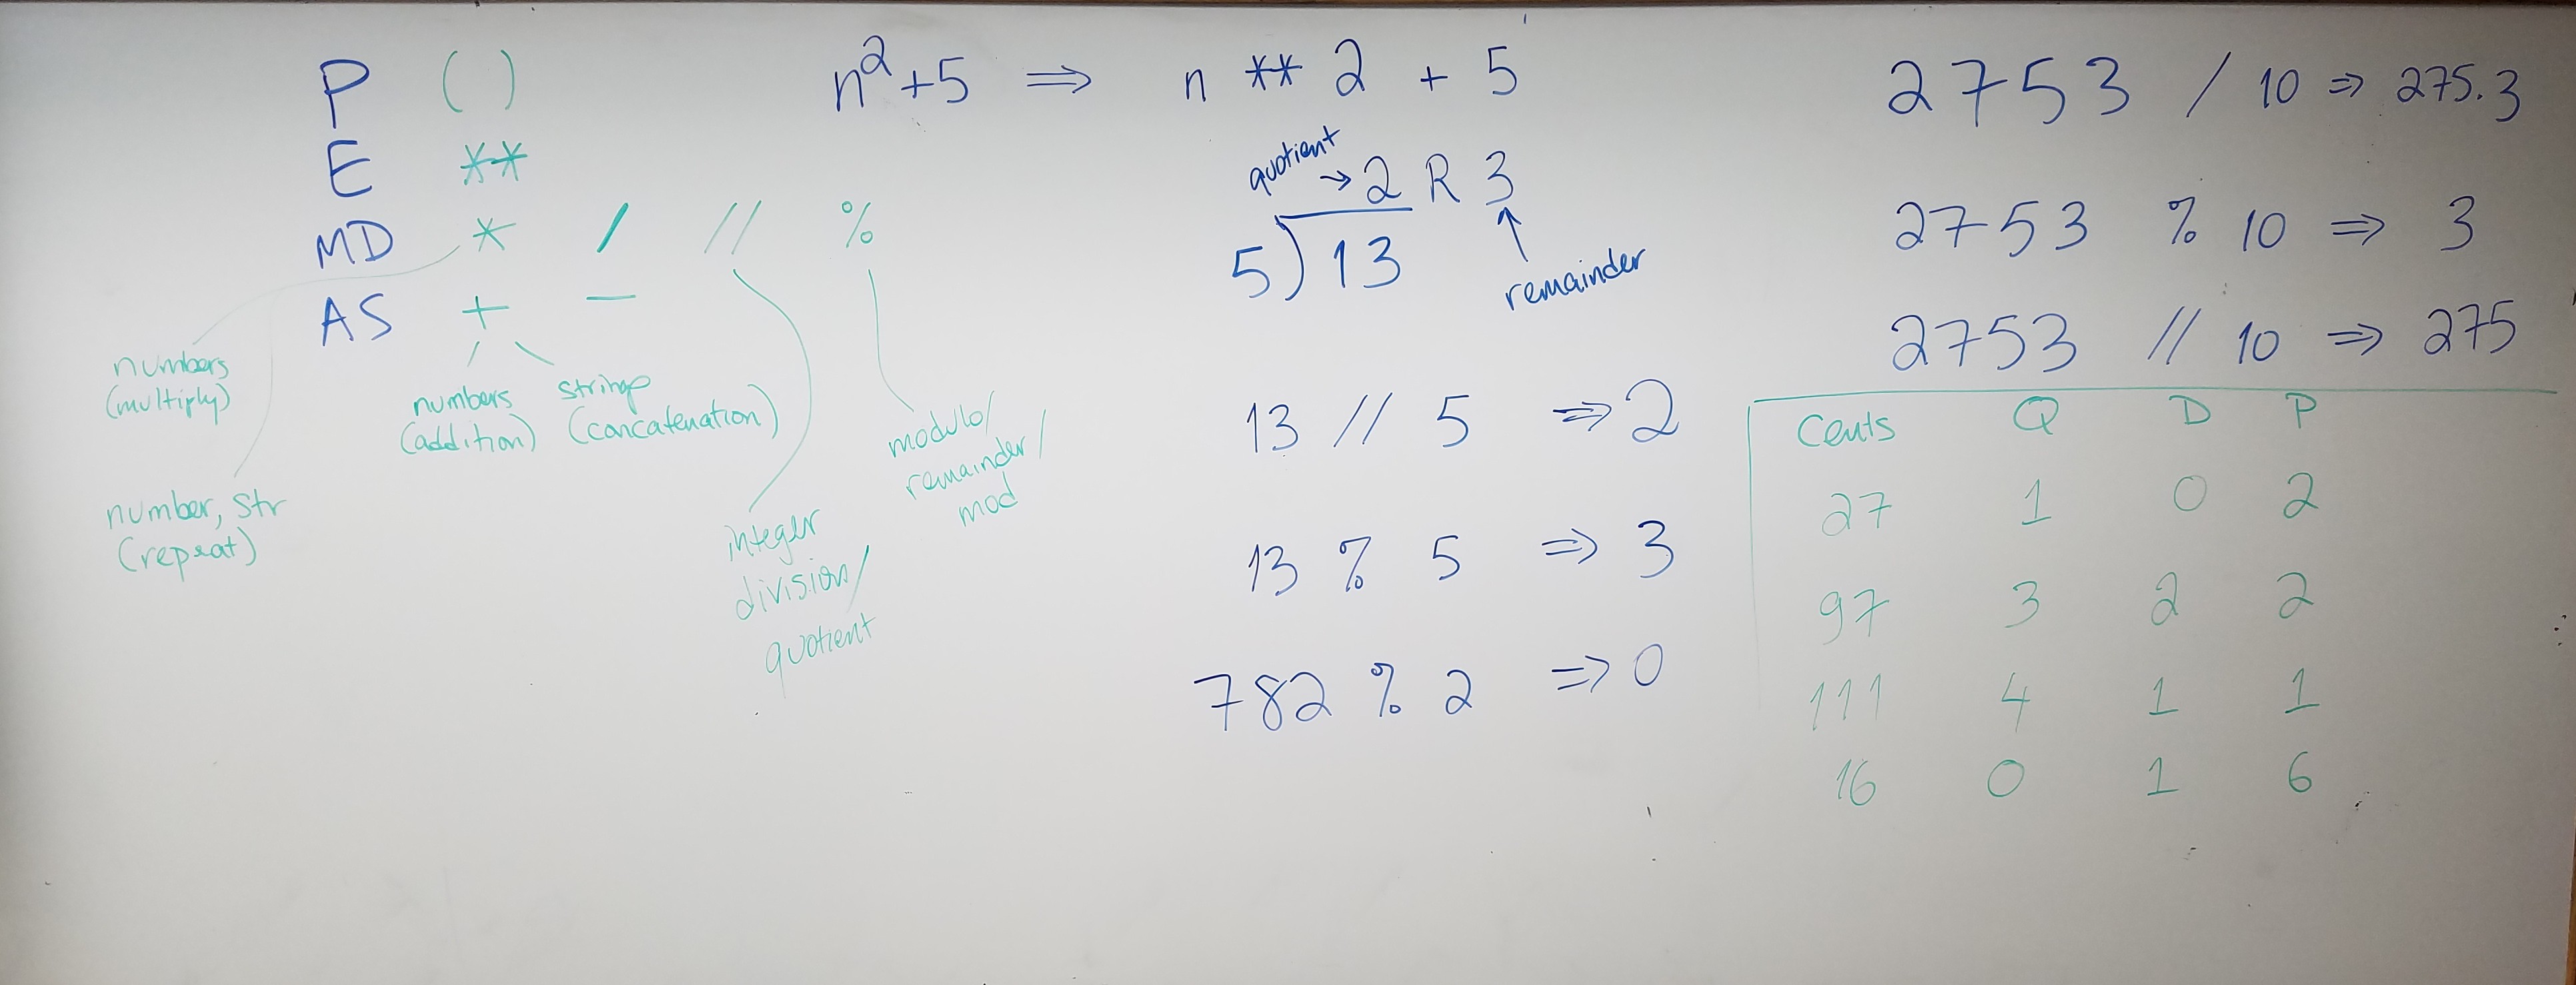 P ( )
E **
MD * / // %
AS + −
numbers
(multiply)
number, str
(repeat)
numbers
(addition)
strings
(concatenation)
integer
division/
quotient
modulo/
remainder/
mod
n²+5 ⇒ n ** 2 + 5
quotient
→ 2 R 3
5) 13
remainder
13 // 5 ⇒ 2
13 % 5 ⇒ 3
782 % 2 ⇒ 0
2753 / 10 ⇒ 275.3
2753 % 10 ⇒ 3
2753 // 10 ⇒ 275
Cents Q D P
27 1 0 2
97 3 2 2
111 4 1 1
16 0 1 6